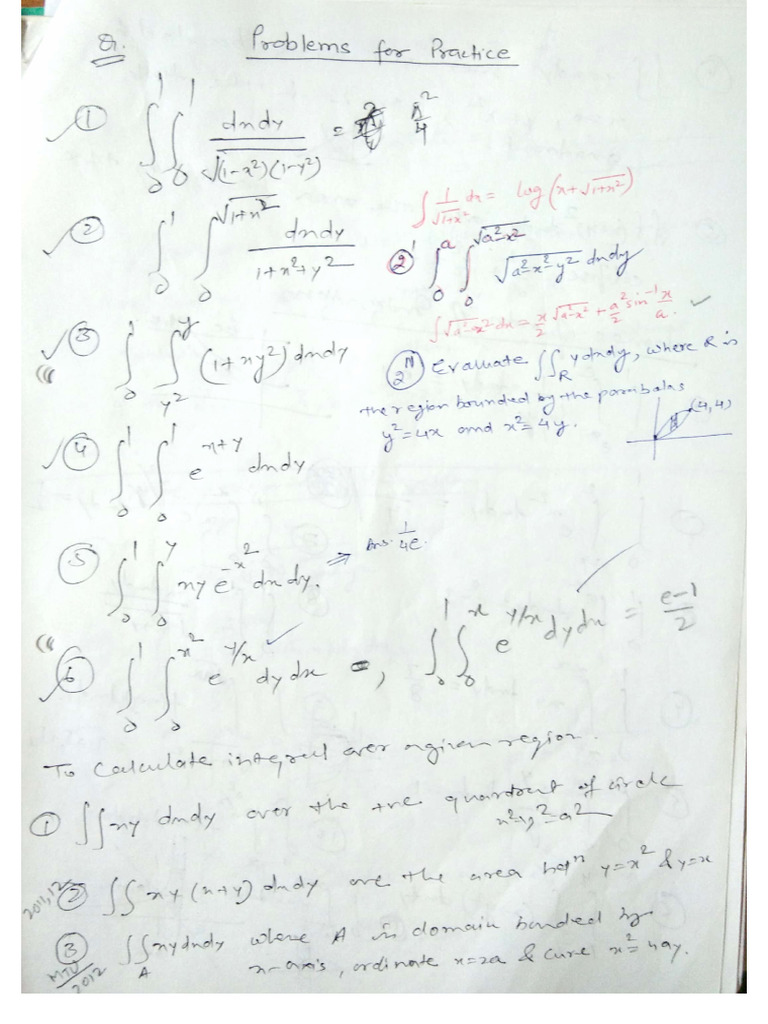 Q. Problems for Practice
① ∫₀¹ ∫₀¹ dxdy / √(1-x²)(1-y²) = π²/4
∫ 1/√1+x² dx = log(x+√1+x²)
② ∫₀¹ ∫₀^√1+x² dxdy / 1+x²+y²
②' ∫₀^a ∫₀^√a²-x² √a²-x²-y² dxdy
∫√a²-x² dx = x/2 √a²-x² + a²/2 sin⁻¹ x/a.
③ ∫₀¹ ∫_y²^y (1+xy²) dxdy
②" Evaluate ∫∫_R y dxdy, where R is
the region bounded by the parabolas
y²=4x and x²=4y.
(4,4)
④ ∫₀¹ ∫₀¹ e^x+y dxdy
⑤ ∫₀¹ ∫₀^y xy e^-x² dxdy. ⇒ Ans. 1/4e.
⑥ ∫₀¹ ∫₀^x² e^y/x dydx =, ∫₀¹ ∫₀^x e^y/x dydx = e-1/2
To calculate integral over a given region.
① ∫∫ xy dxdy over the +ve quardrant of circle
x²+y²=a²
2011,12 ② ∫∫ xy(x+y) dxdy ove the area betⁿ y=x² & y=x
③ ∫∫_A xy dxdy where A is domain bonded by
MTU 2012 x-axis, ordinate x=2a & curve x²=4ay.